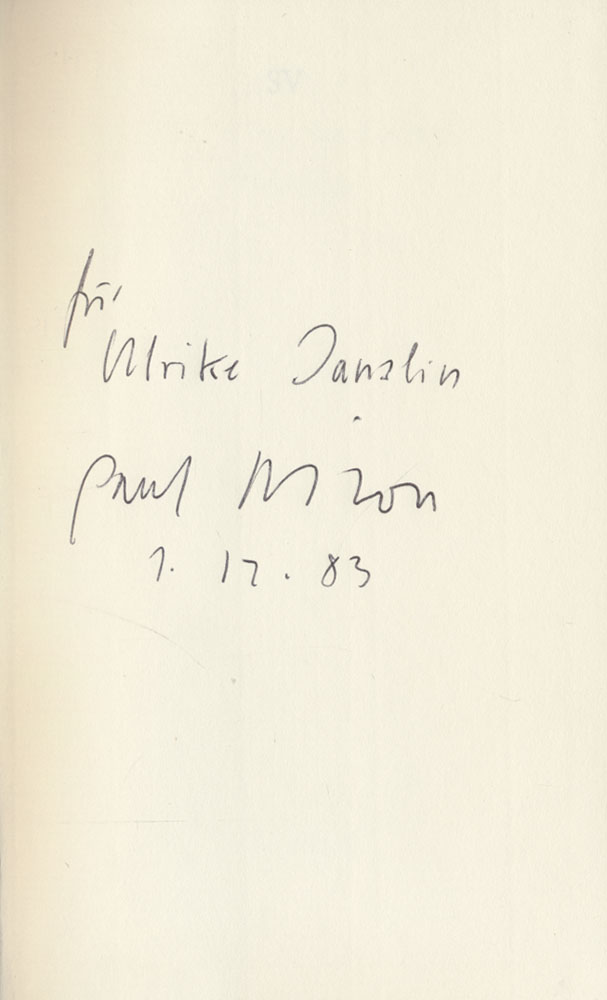 für
Ulrike Janslin
Paul Nizon
1. 12. 83